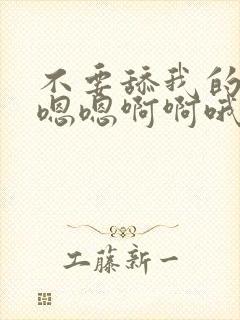 不要舔我的
嗯嗯啊啊哦
工藤新一